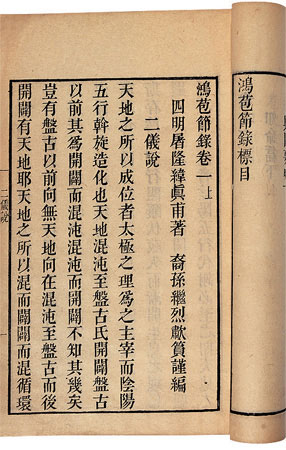 鴻苞節錄標目
鴻苞節錄卷一上
四明屠隆緯眞甫著　裔孫繼烈歟質謹編
二儀說
天地之所以成位者太極之理爲之主宰而陰陽
五行斡旋造化也天地混沌至盤古氏開闢盤古
以前其爲開闢而混沌混沌而開闢不知其幾矣
豈有盤古以前向無天地向在混沌至盤古而後
開闢有天地耶天地之所以混而闢闢而混循環
二儀說
一